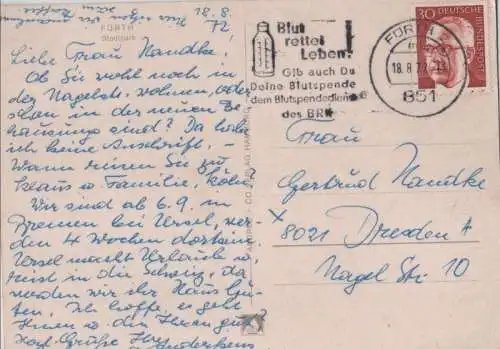 18.8.
72
FÜRTH
Stadtpark
Liebe Frau Nandtke!
Ob Sie wohl noch in
der Nagelstr. wohnen, oder
schon in der neuen Be-
hausung sind? Da habe
ich keine Anschrift. -
Wann reisen Sie zu
Klaus u. Familie, Köln?
Wir sind ab 6.9. in
Bremen bei Ursel, wer-
den 4 Wochen dort sein.
Ursel macht Urlaub u.
reist in die Schweiz, da
werden wir ihr Haus hü-
ten. Ich hoffe, es geht
Ihnen u. den Ihren gut?
Herzl. Grüße Ihre
Blut
rettet
Leben!
Gib auch Du
Deine Blutspende
dem Blutspendedienst
des BRK
FÜRTH
18.8.72
851
30
DEUTSCHE BUNDESPOST
Frau
Gertrud Nandtke
8021 Dresden A
Nagel Str. 10